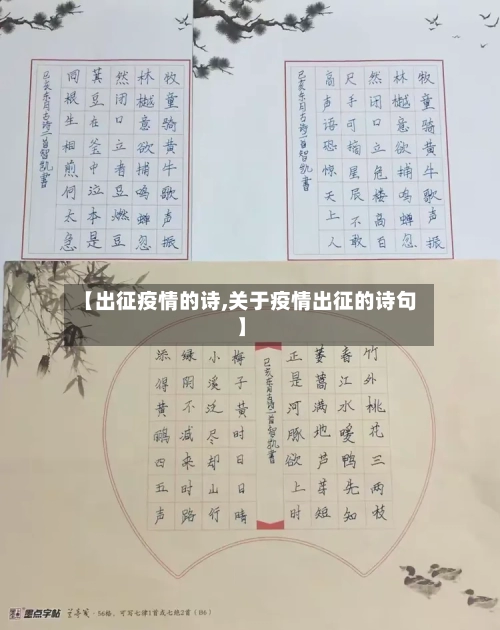 牧童骑黄牛歌声振
林樾意欲捕鸣蝉忽
然闭口立者豆燃豆
萁豆在釜中泣本是
同根生相煎何太急
己亥东月古诗二首智凯書
牧童骑黄牛歌声振
林樾意欲捕鸣蝉忽
然闭口立危楼高百
尺手可摘星辰不敢
高声语恐惊天上人
己亥东月古诗二首智凯書
【出征疫情的诗,关于疫情出征的诗句
】
竹外桃花三两枝
春江水暖鸭先知
蒌蒿满地芦芽短
正是河豚欲上时
己亥东月古诗二首智凯書
梅子黄时日日晴
小溪泛尽却山行
绿阴不减来时路
添得黄鹂四五声
墨点字帖 · 56格，可写七律1首或七绝2首